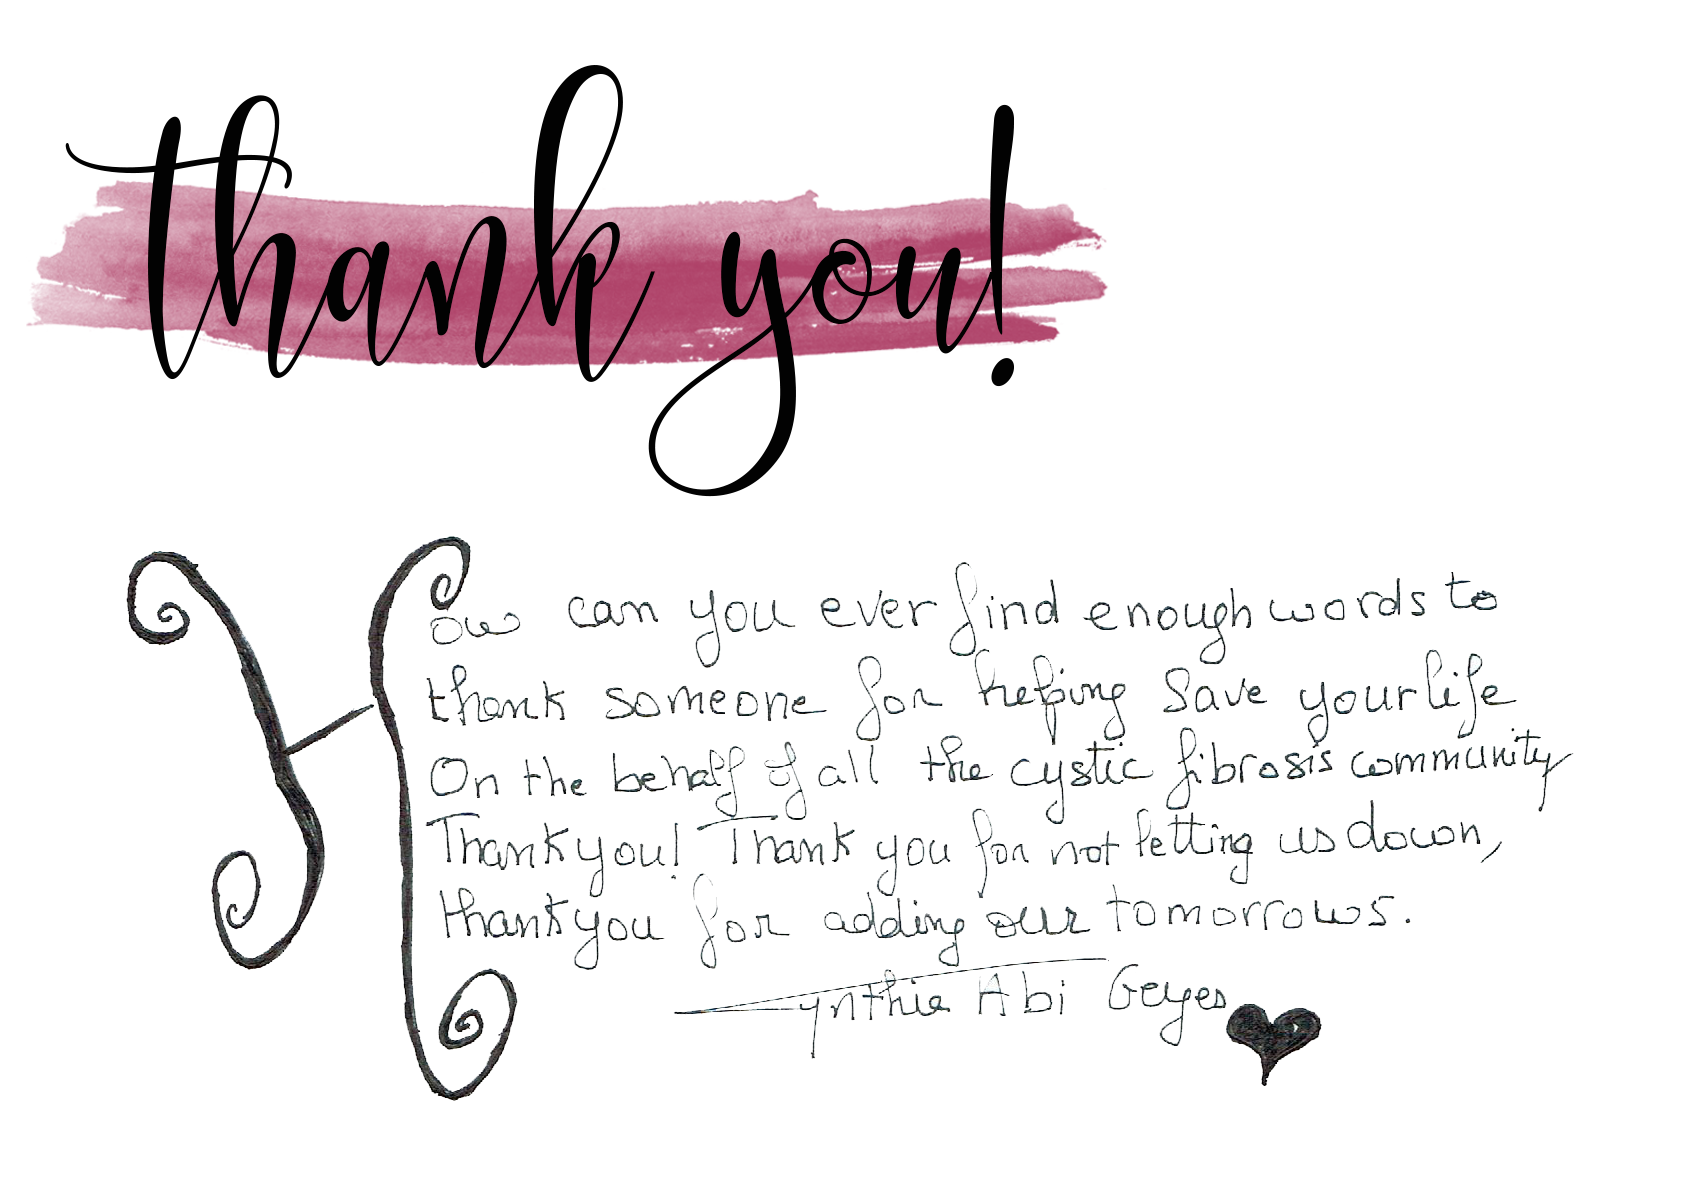 thank you!
How can you ever find enough words to
thank someone for helping save your life
On the behalf of all the cystic fibrosis community
Thank you! Thank you for not letting us down,
thank you for adding our tomorrows.
Cynthia Abi Geyes